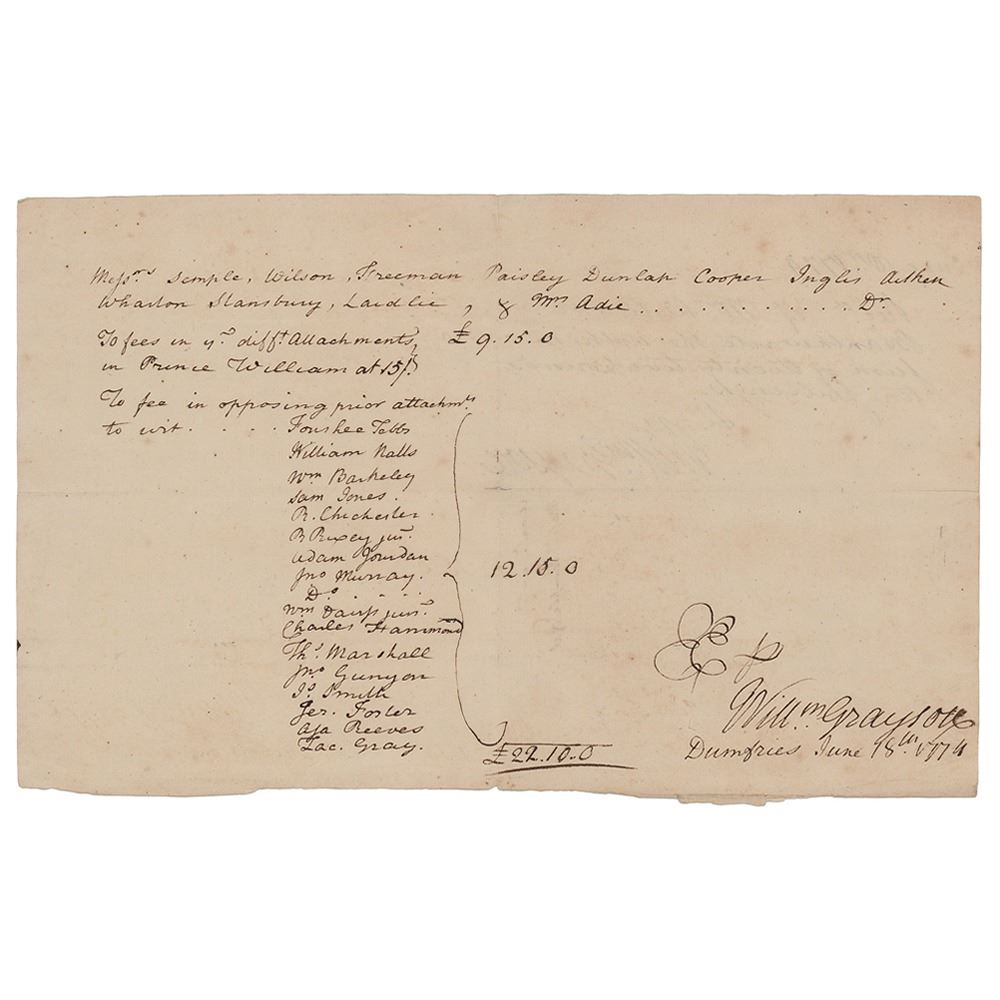 Messrs Semple, Wilson, Freeman Paisley Dunlap Cooper Inglis Aitken
Wharton Stansbury, Laidlie, & Mrs Adie . . . . . . . . . . . Dr
To fees in yr difft Attachments, £ 9. 15. 0
in Prince William at 15/.
To fee in opposing prior attachmts
to wit. . . . Foushee Tebbs
William Nalls
Wm Barkeley
Sam Jones.
R. Chichester.
R Rixey junr.
Adam Jourdan
Jno Murray. 12. 15. 0
Do. . . .
Wm Davis junr.
Charles Hammond
Ths. Marshall
Jno Gunyon
Js. Smith
Jer. Foster
Asa Reeves
Zac. Gray.
£22. 10. 0
E p
Willm Grayson
Dumfries June 18th 1774